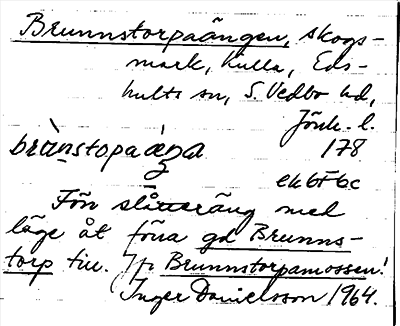 Brunnstorpaängen, skogs-
mark, kulla, Eds-
hults sn, S. Vedbo hd,
Jönk. l.
178
ek bf bc
Förr slåtteräng med
läge åt förra gd Brunns-
torp till. Jfr Brunnstorpamossen!
Inger Danielsson 1964.